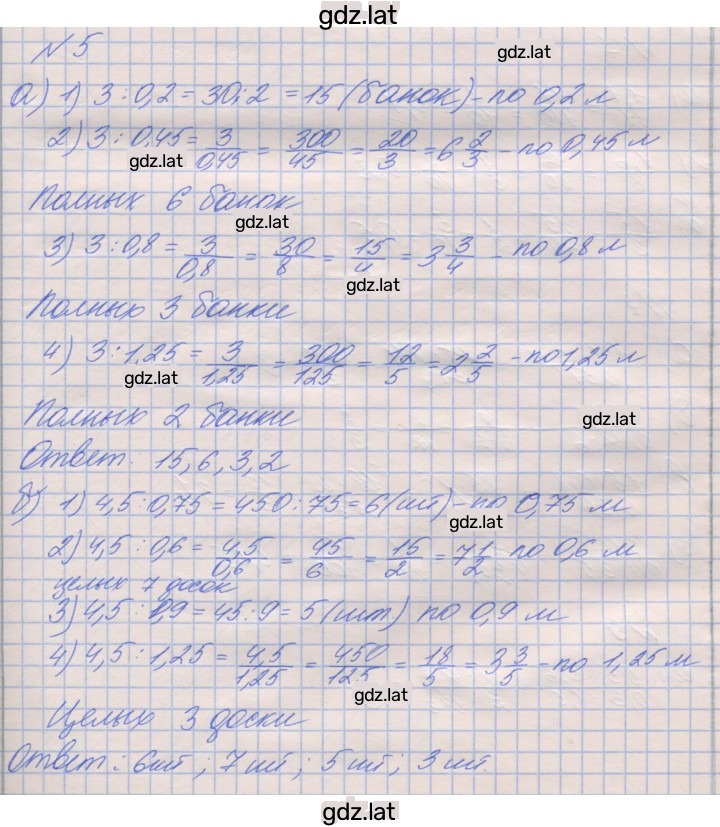 gdz.lat
N 5
gdz.lat
а) 1) 3 : 0,2 = 30 : 2 = 15 (банок) - по 0,2 л
2) 3 : 0,45 = 3/0,45 = 300/45 = 20/3 = 6 2/3 - по 0,45 л
gdz.lat
Полных 6 банок
gdz.lat
3) 3 : 0,8 = 3/0,8 = 30/8 = 15/4 = 3 3/4 - по 0,8 л
gdz.lat
Полных 3 банки
4) 3 : 1,25 = 3/1,25 = 300/125 = 12/5 = 2 2/5 - по 1,25 л
gdz.lat
Полных 2 банки
gdz.lat
Ответ. 15, 6, 3, 2
б) 1) 4,5 : 0,75 = 450 : 75 = 6 (шт) - по 0,75 м
gdz.lat
2) 4,5 : 0,6 = 4,5/0,6 = 45/6 = 15/2 = 7 1/2 по 0,6 м
целых 7 досок
3) 4,5 : 0,9 = 45 : 9 = 5 (шт) по 0,9 м
4) 4,5 : 1,25 = 4,5/1,25 = 450/125 = 18/5 = 3 3/5 - по 1,25 м
gdz.lat
Целых 3 доски
Ответ : 6 шт ; 7 шт ; 5 шт ; 3 шт.
gdz.lat